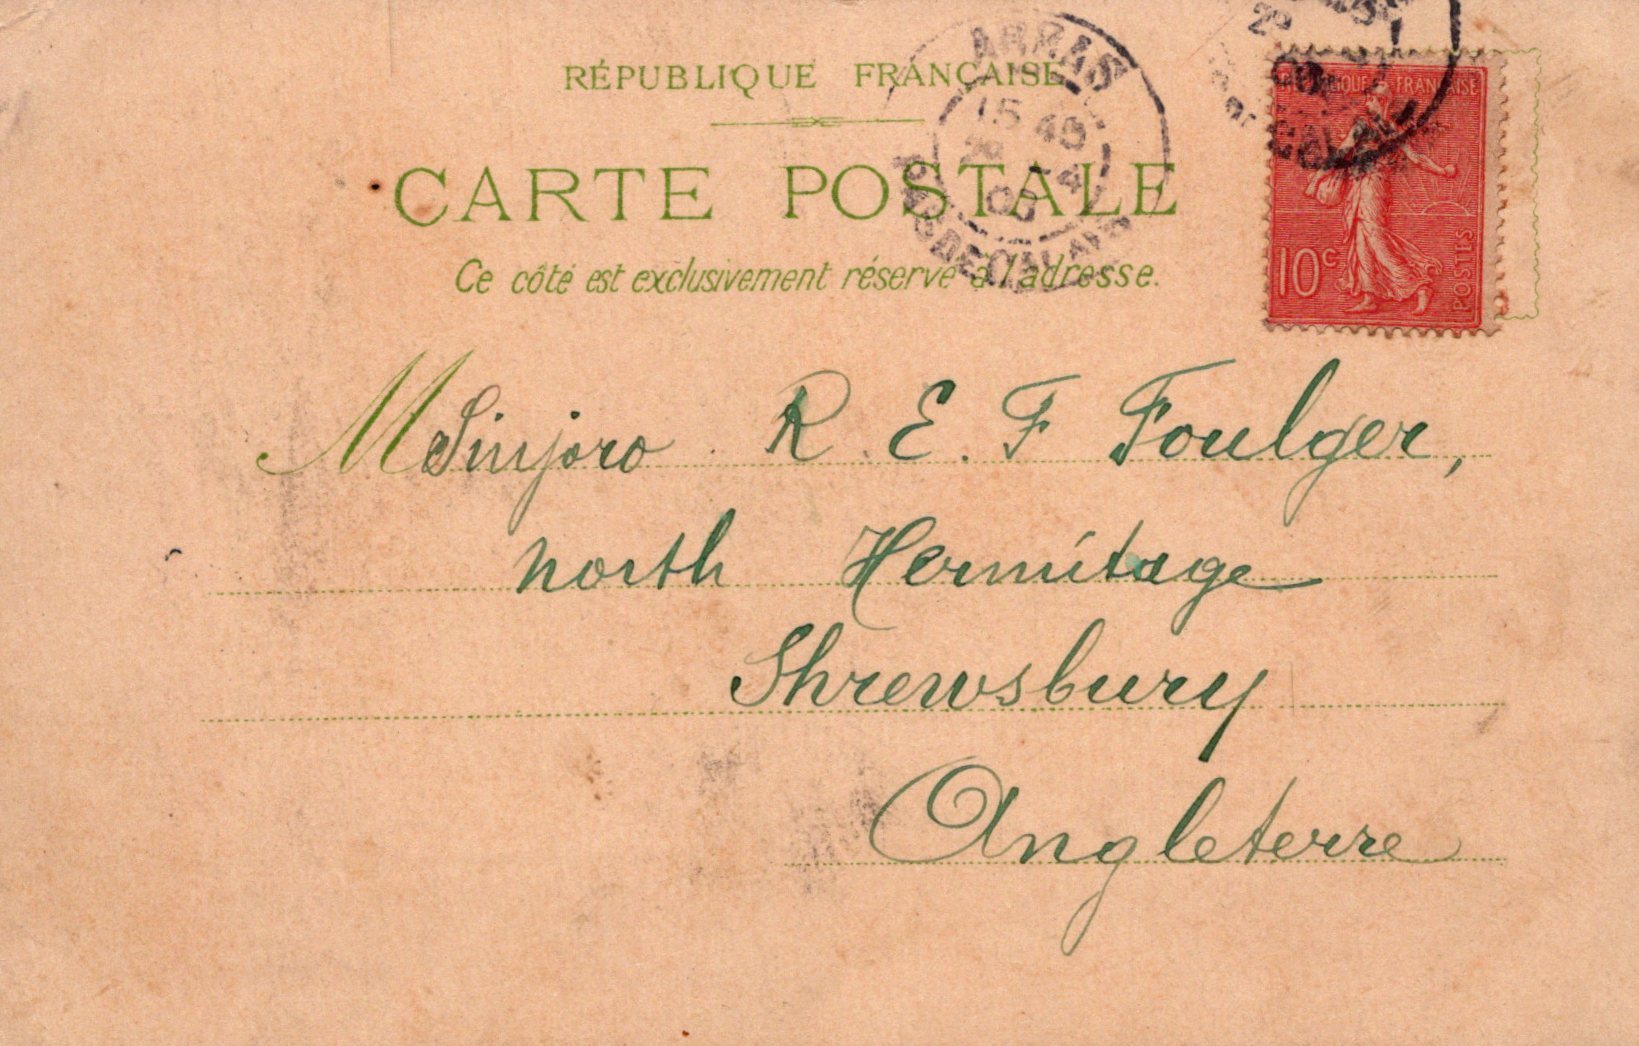 RÉPUBLIQUE FRANÇAISE
CARTE POSTALE
Ce côté est exclusivement réservé à l'adresse.
ARRAS
15 40
29 -4
05
PAS DE CALAIS
RÉPUBLIQUE FRANÇAISE
10c
POSTES
M Sinjoro R. E. F Foulger,
North Hermitage
Shrewsbury
Angleterre